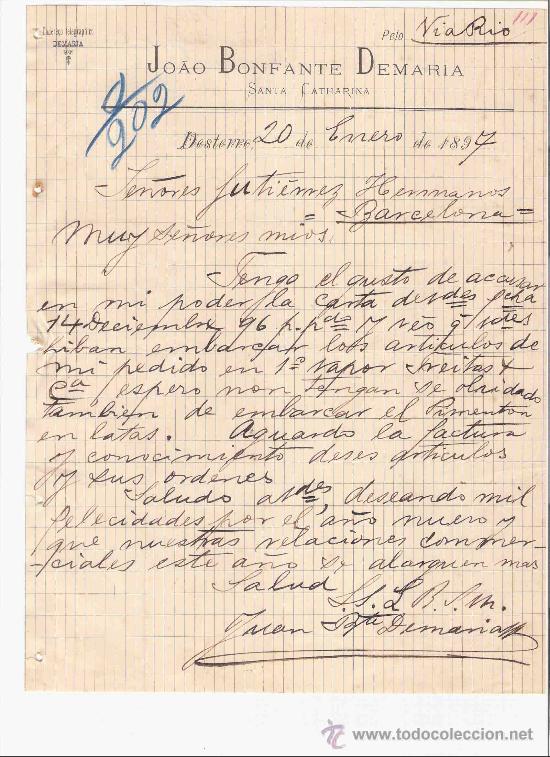 Endereço telegraphico
DEMARIA
Pelo Via Rio
JOÃO BONFANTE DEMARIA
SANTA CATHARINA
2/202
Desterro, 20 de Enero de 1897
Señores Gutiérrez Hermanos
= Barcelona =
Muy Señores mios:
Tengo el gusto de accusar
en mi poder la carta de vdes fcha
14 Deciembre 96 p. pdo y veo q
iban embarcar los articulos de
mi pedido en 1º vapor Freitas &
Ca, espero non tengan se olvidado
tambien de embarcar el Pimenton
en latas. Aguardo la factura
y conocimiento deses articulos
y sus ordenes
Saludo a Vdes, deseando mil
felecidades por el año nuevo y
que nuestras relaciones commer-
-ciales este año se alarguen mas
Salud
S.S. L B. S. M.
Juan Bta Demaria
www.todocoleccion.net